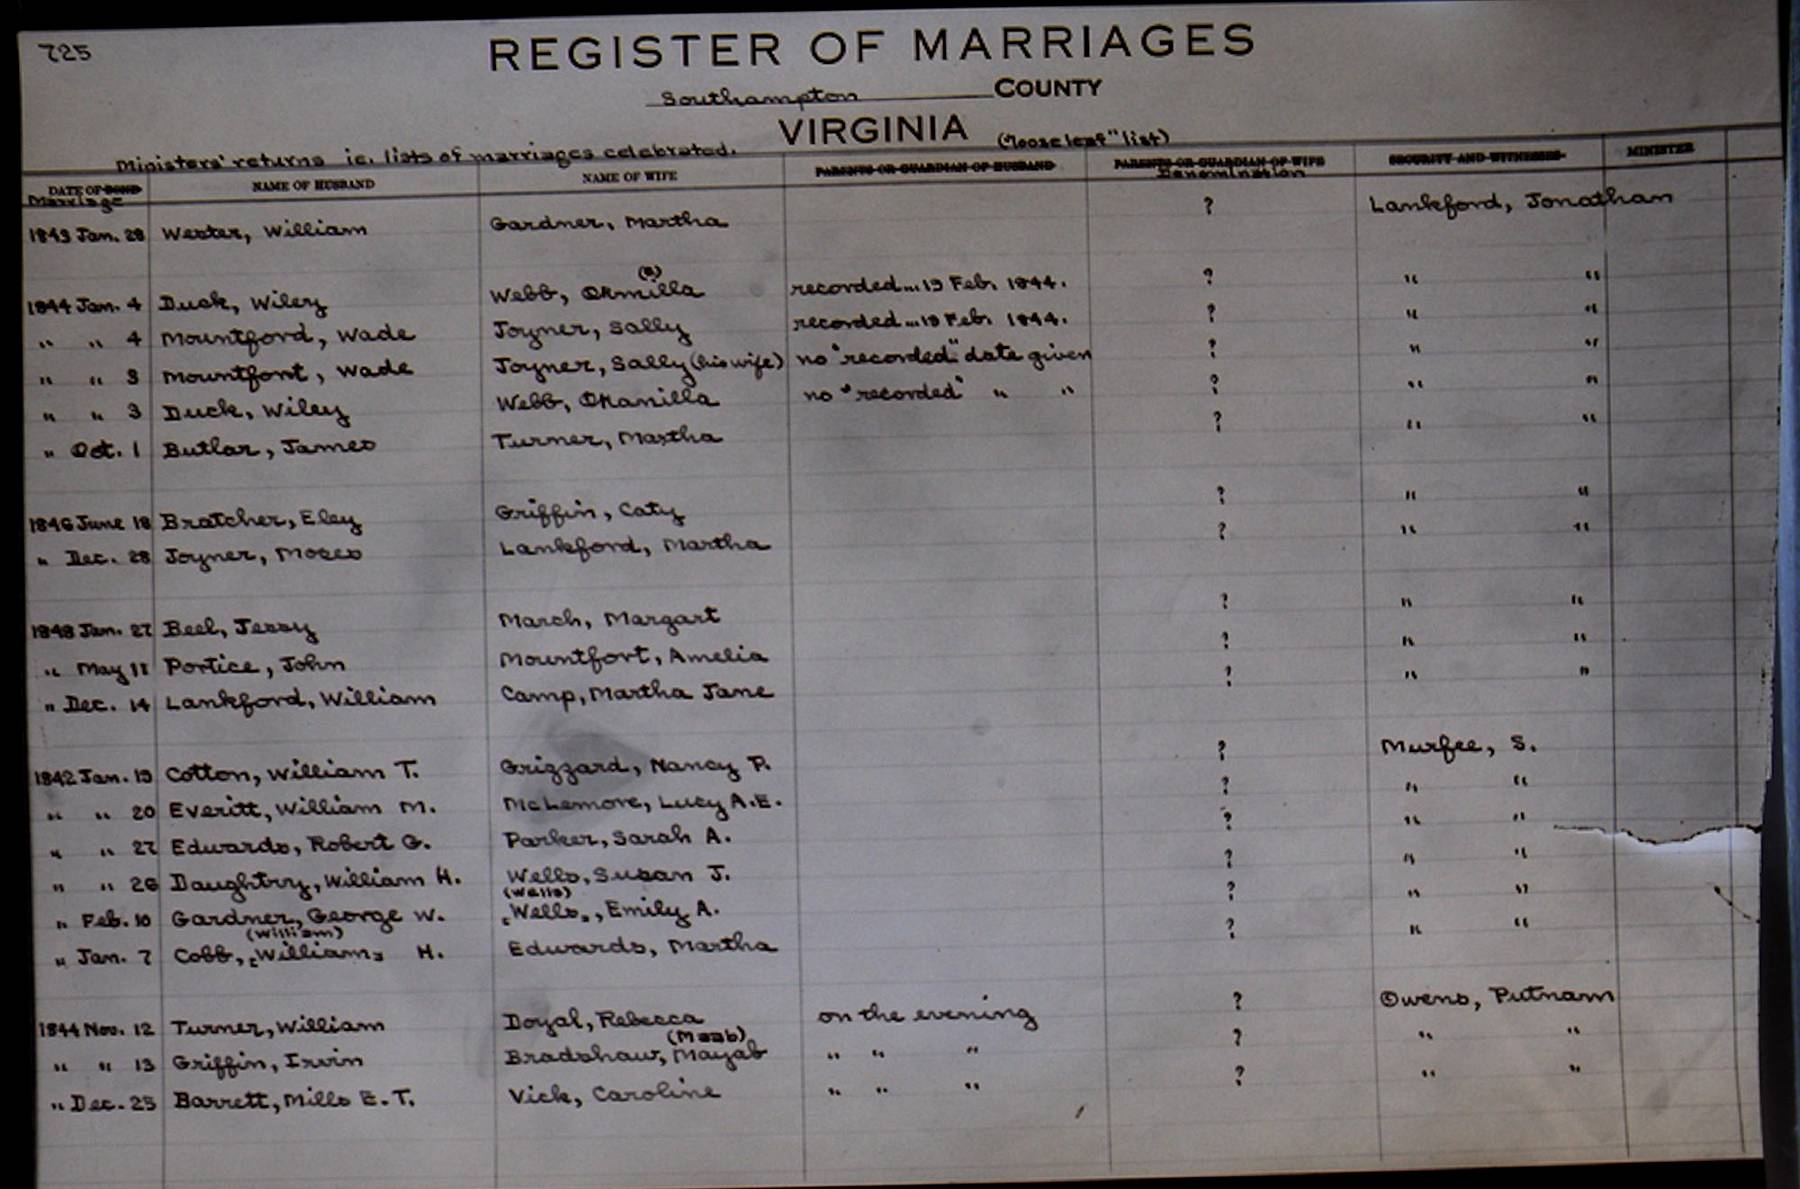 725
REGISTER OF MARRIAGES
Southampton COUNTY
VIRGINIA ("loose leaf" list)
Ministers' returns ie. lists of marriages celebrated.
DATE OF BOND Marriage NAME OF HUSBAND NAME OF WIFE PARENTS OR GUARDIAN OF HUSBAND PARENTS OR GUARDIAN OF WIFE Denomination SECURITY AND WITNESSES MINISTER
1843 Jan. 28 Wester, William Gardner, Martha ? Lankford, Jonathan
1844 Jan. 4 Duck, Wiley Webb, (a) recorded... 19 Feb. 1844. ? " "
" " 4 Mountford, Wade Joyner, Sally recorded... 19 Feb. 1844. ? " "
" " 3 Mountfont, Wade Joyner, Sally (his wife) no "recorded" date given ? " "
" " 3 Duck, Wiley Webb, no "recorded" " " ? " "
" Oct. 1 Butlar, James Turner, Martha ? " "
1846 June 18 Bratcher, Eley Griffin, Caty ? " "
" Dec. 28 Joyner, Moses Lankford, Martha ? " "
1848 Jan. 27 Beel, Jessy March, Margart ? " "
" May 11 Portice, John Mountfort, Amelia ? " "
" Dec. 14 Lankford, William Camp, Martha Jane ? " "
1842 Jan. 13 Cotton, William T. Grizzard, Nancy P. ? Murfee, S.
" " 20 Everitt, William M. McLemore, Lucy A.E. ? " "
" " 27 Edwards, Robert G. Parker, Sarah A. ? " "
" " 26 Daughtry, William H. Wells, Susan J. ? " "
" Feb. 10 Gardner, George W. (Wells) [Wells], Emily A. ? " "
" Jan. 7 Cobb, (William) [William] H. Edwards, Martha ? " "
1844 Nov. 12 Turner, William Doyal, Rebecca on the evening ? Owens, Putnam
" " 13 Griffin, Irvin Bradshaw, (Maab) Mayab " " " ? " "
" Dec. 25 Barrett, Mills E.T. Vick, Caroline " " " ? " "